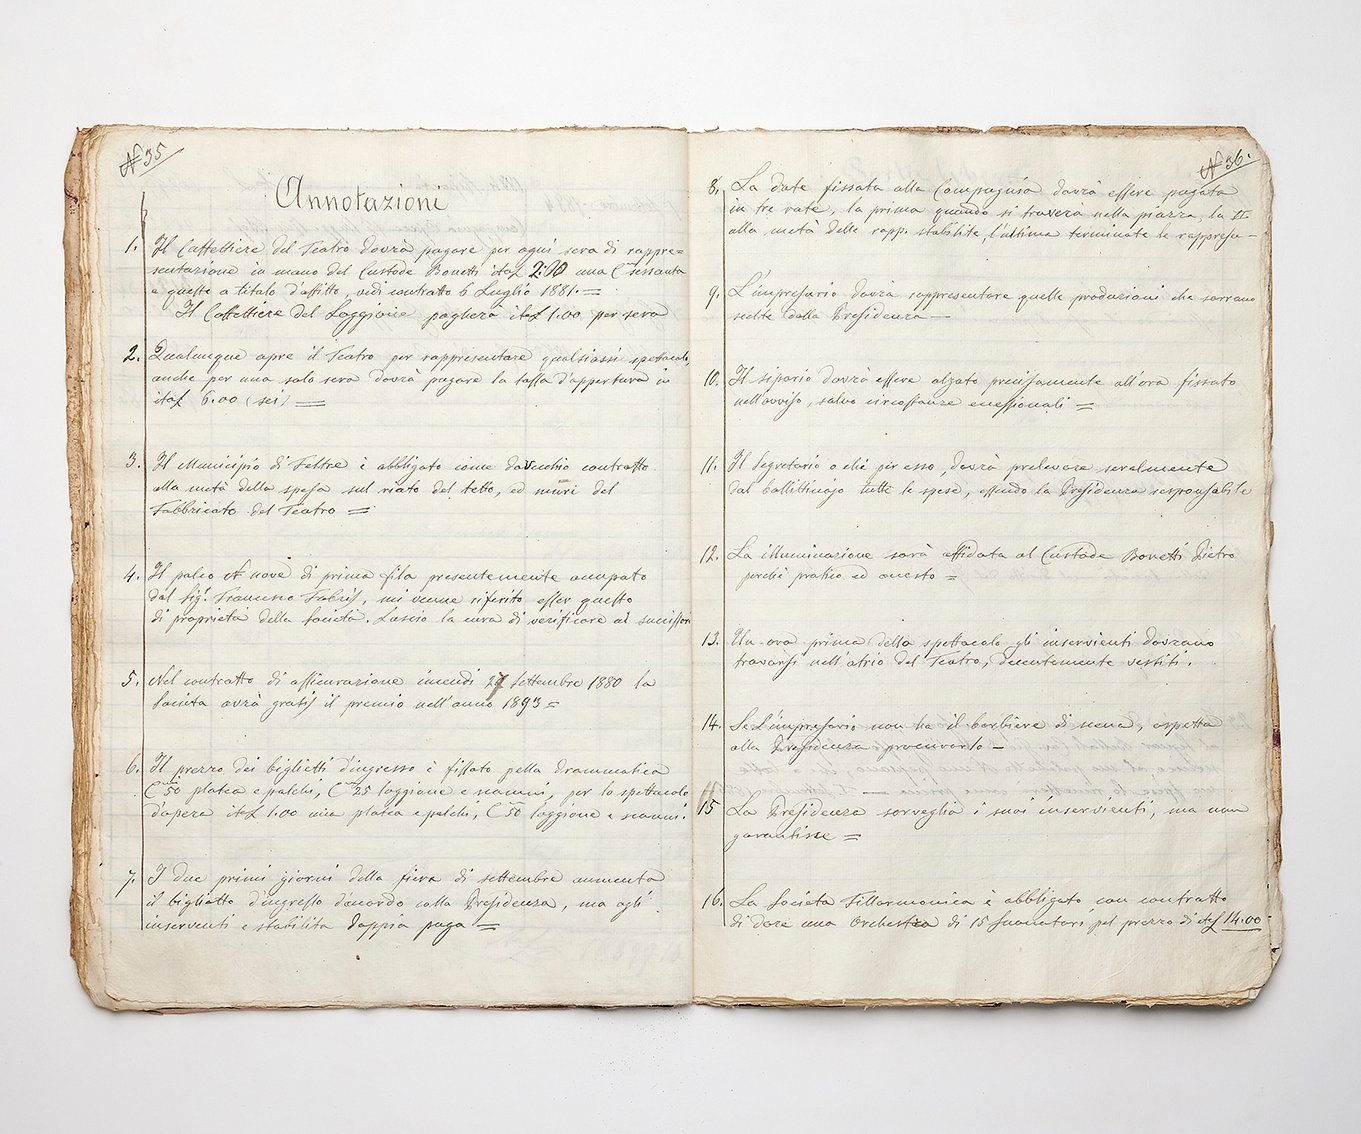 N 35
Annotazioni
1. Il Caffettiere del Teatro dovrà pagare per ogni sera di rappre=
sentazione in mano del Custode Bonetti it£ 2:00 una C sessanta
e queste a titolo d'affitto, vedi contratto 6 Luglio 1881. =
Il Caffettiere del Loggione pagherà it£ 1.00 per sera
2. Qualunque apre il Teatro per rappresentare qualsiassi spettacolo,
anche per una sola sera dovrà pagare la tassa d'appertura in
it£ 6.00 (sei) =
3. Il Municipio di Feltre è abbligato come da vecchio contratto
alla metà della spesa sul riato del tetto, ed muri del
Fabbricato del Teatro =
4. Il palco N nove di prima fila presentemente occupato
dal Sig.r Francesco Fabris, mi venne riferito esser questo
di proprietà della Società. Lascio la cura di verificare ai successori
5. Nel contratto di assicurazione incendi 27 settembre 1880 la
Società avrà gratis il premio nell'anno 1893 =
6. Il prezzo dei biglietti d'ingresso è fissato pella Drammatica
C 50 platea e palchi, C 25 loggione e scanni, per lo spettacolo
d'opera it£ 1.00 platea e palchi, C 50 loggione e scanni.
7. I due primi giorni della fiera di settembre aumenta
il biglietto d'ingresso d'accordo colla Presidenza, ma agli
inservienti è stabilita doppia paga =
N 36.
8. La date fissata alla Compagnia dovrà essere pagata
in tre rate, la prima quando si troverà nella piazza, la II
alla metà delle rapp. stabilite, l'ultima terminate le rapprese -
9. L'impresario dovrà rappresentare quelle produzioni che sarrano
scelte dalla Presidenza -
10. Il sipario dovrà essere alzato precisamente all'ora fissato
nell'avviso, salvo circostanze eccessionali =
11. Il Segretario o chi per esso, dovrà prelevare seralmente
dal bollittinajo tutte le spese, essendo la Presidenza responsabile
12. La illuminazione sarà affidata al Custode Bonetti Pietro
perchè pratico ed onesto =
13. Un ora prima dello spettacolo gli inservienti dovrano
trovarsi nell'atrio del Teatro, decentemente vestiti.
14. Se l'impresario non ha il barbiere di scena, aspetta
alla Presidenza procurarlo -
15 La Presidenza sorveglia i suoi inservienti, ma non
garantisce =
16. La Società Fillarmonica è abbligato con contratto
di dare una Orchestra di 15 Suonatori pel prezzo di it£ 14.00 =